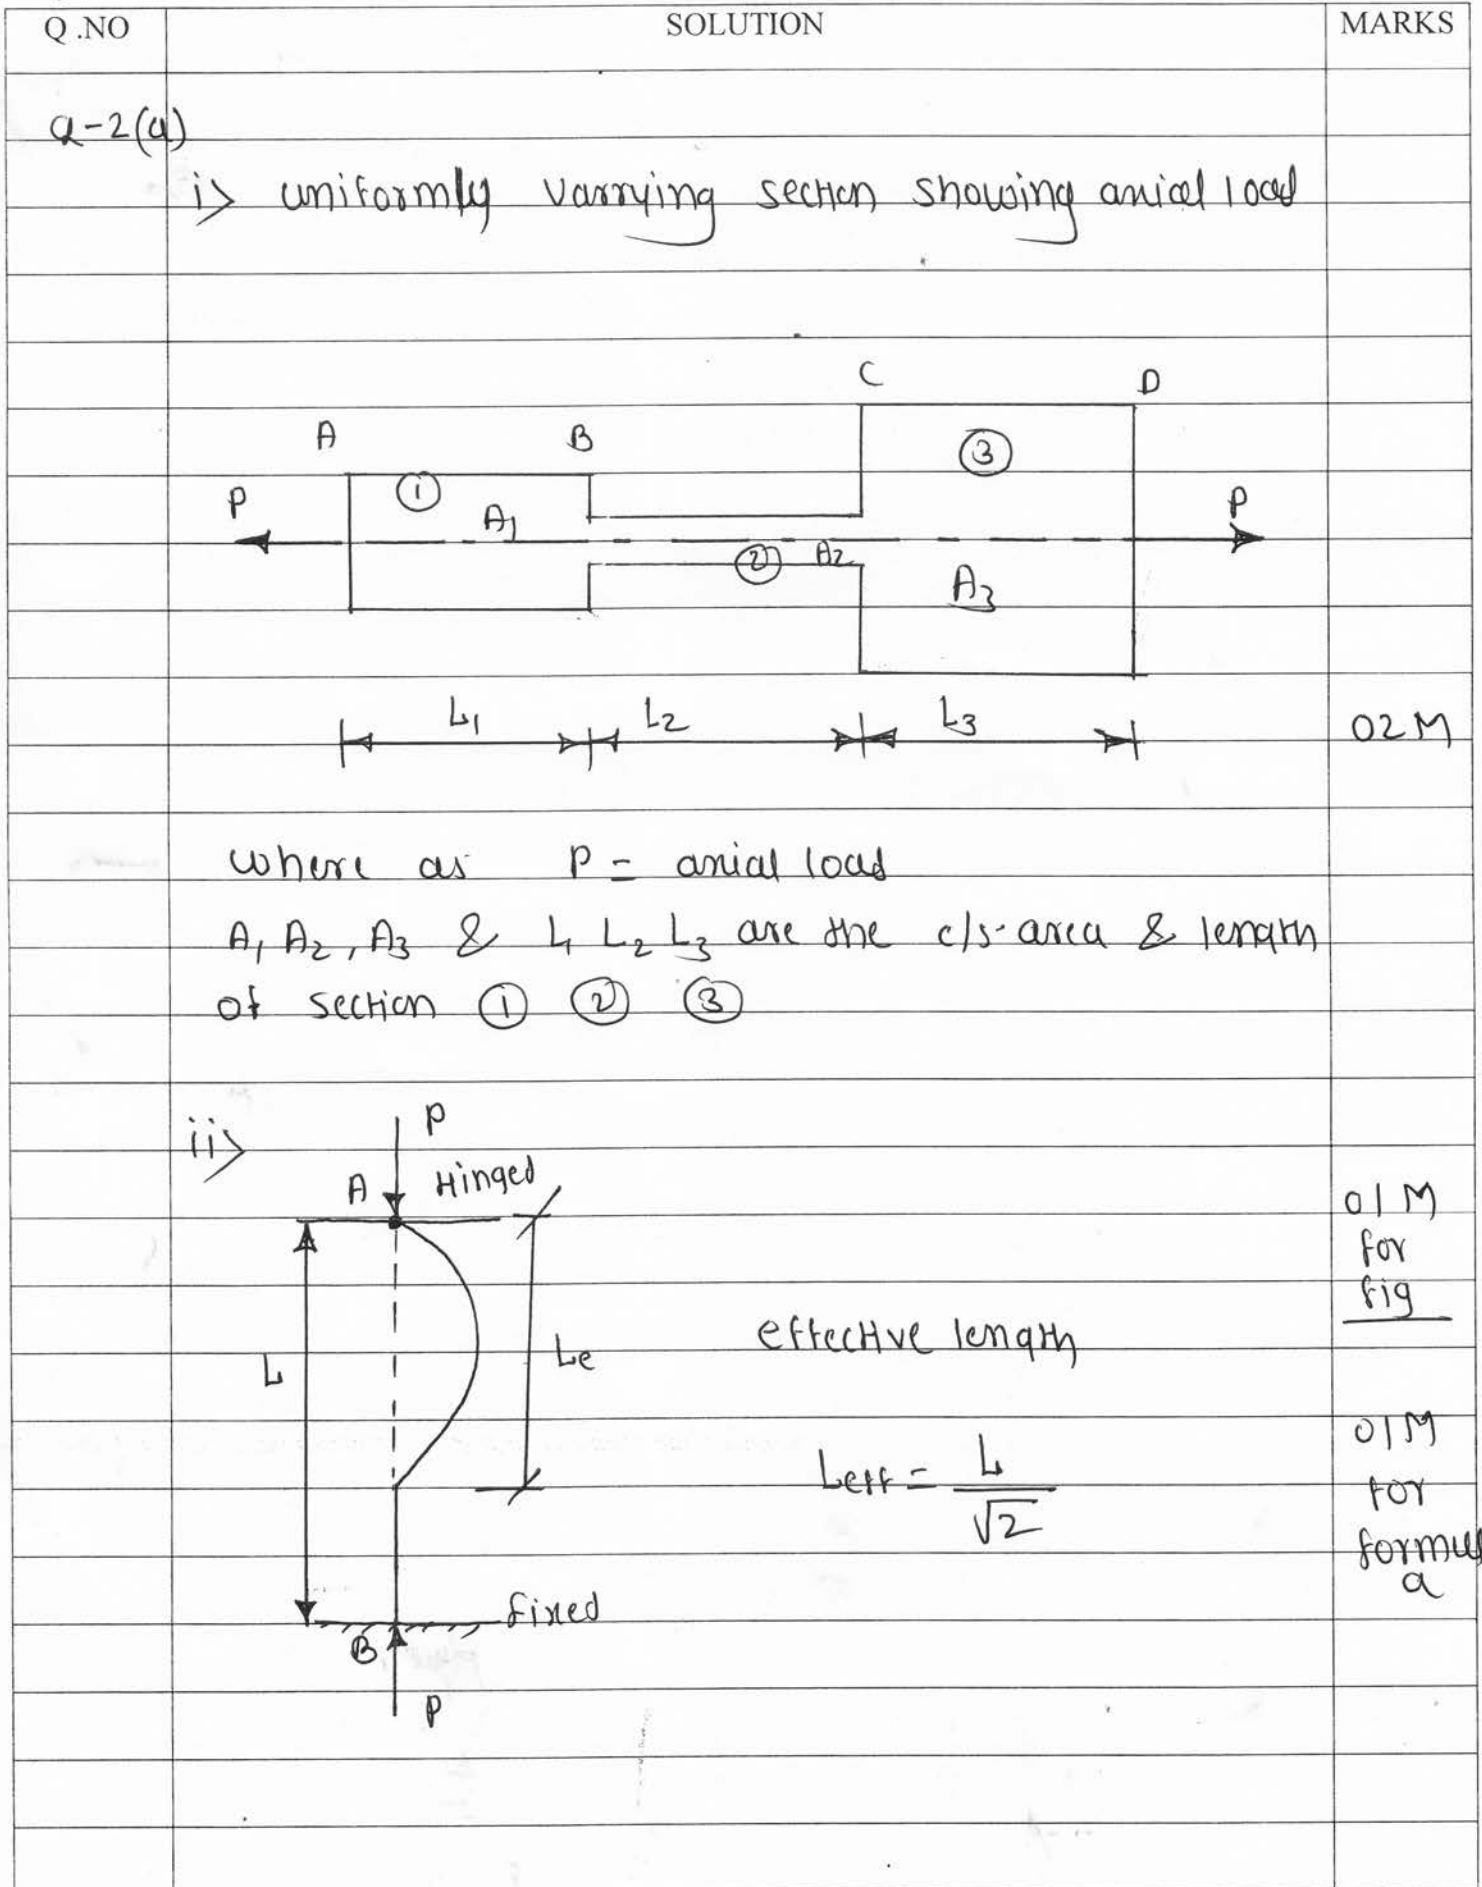 Q .NO SOLUTION MARKS
Q-2(a)
i> uniformly varrying section showing axial load
C D
A B
① ③
P A₁ P
② A₂
A₃
L₁ L₂ L₃ 02 M
where as P = axial load
A₁ A₂, A₃ & L₁ L₂ L₃ are the c/s. area & length
of section ① ② ③
ii>
P
A Hinged
01 M
for
fig
effective length
L Le
Leff = L/√2
01 M
for
formula
fixed
B
P